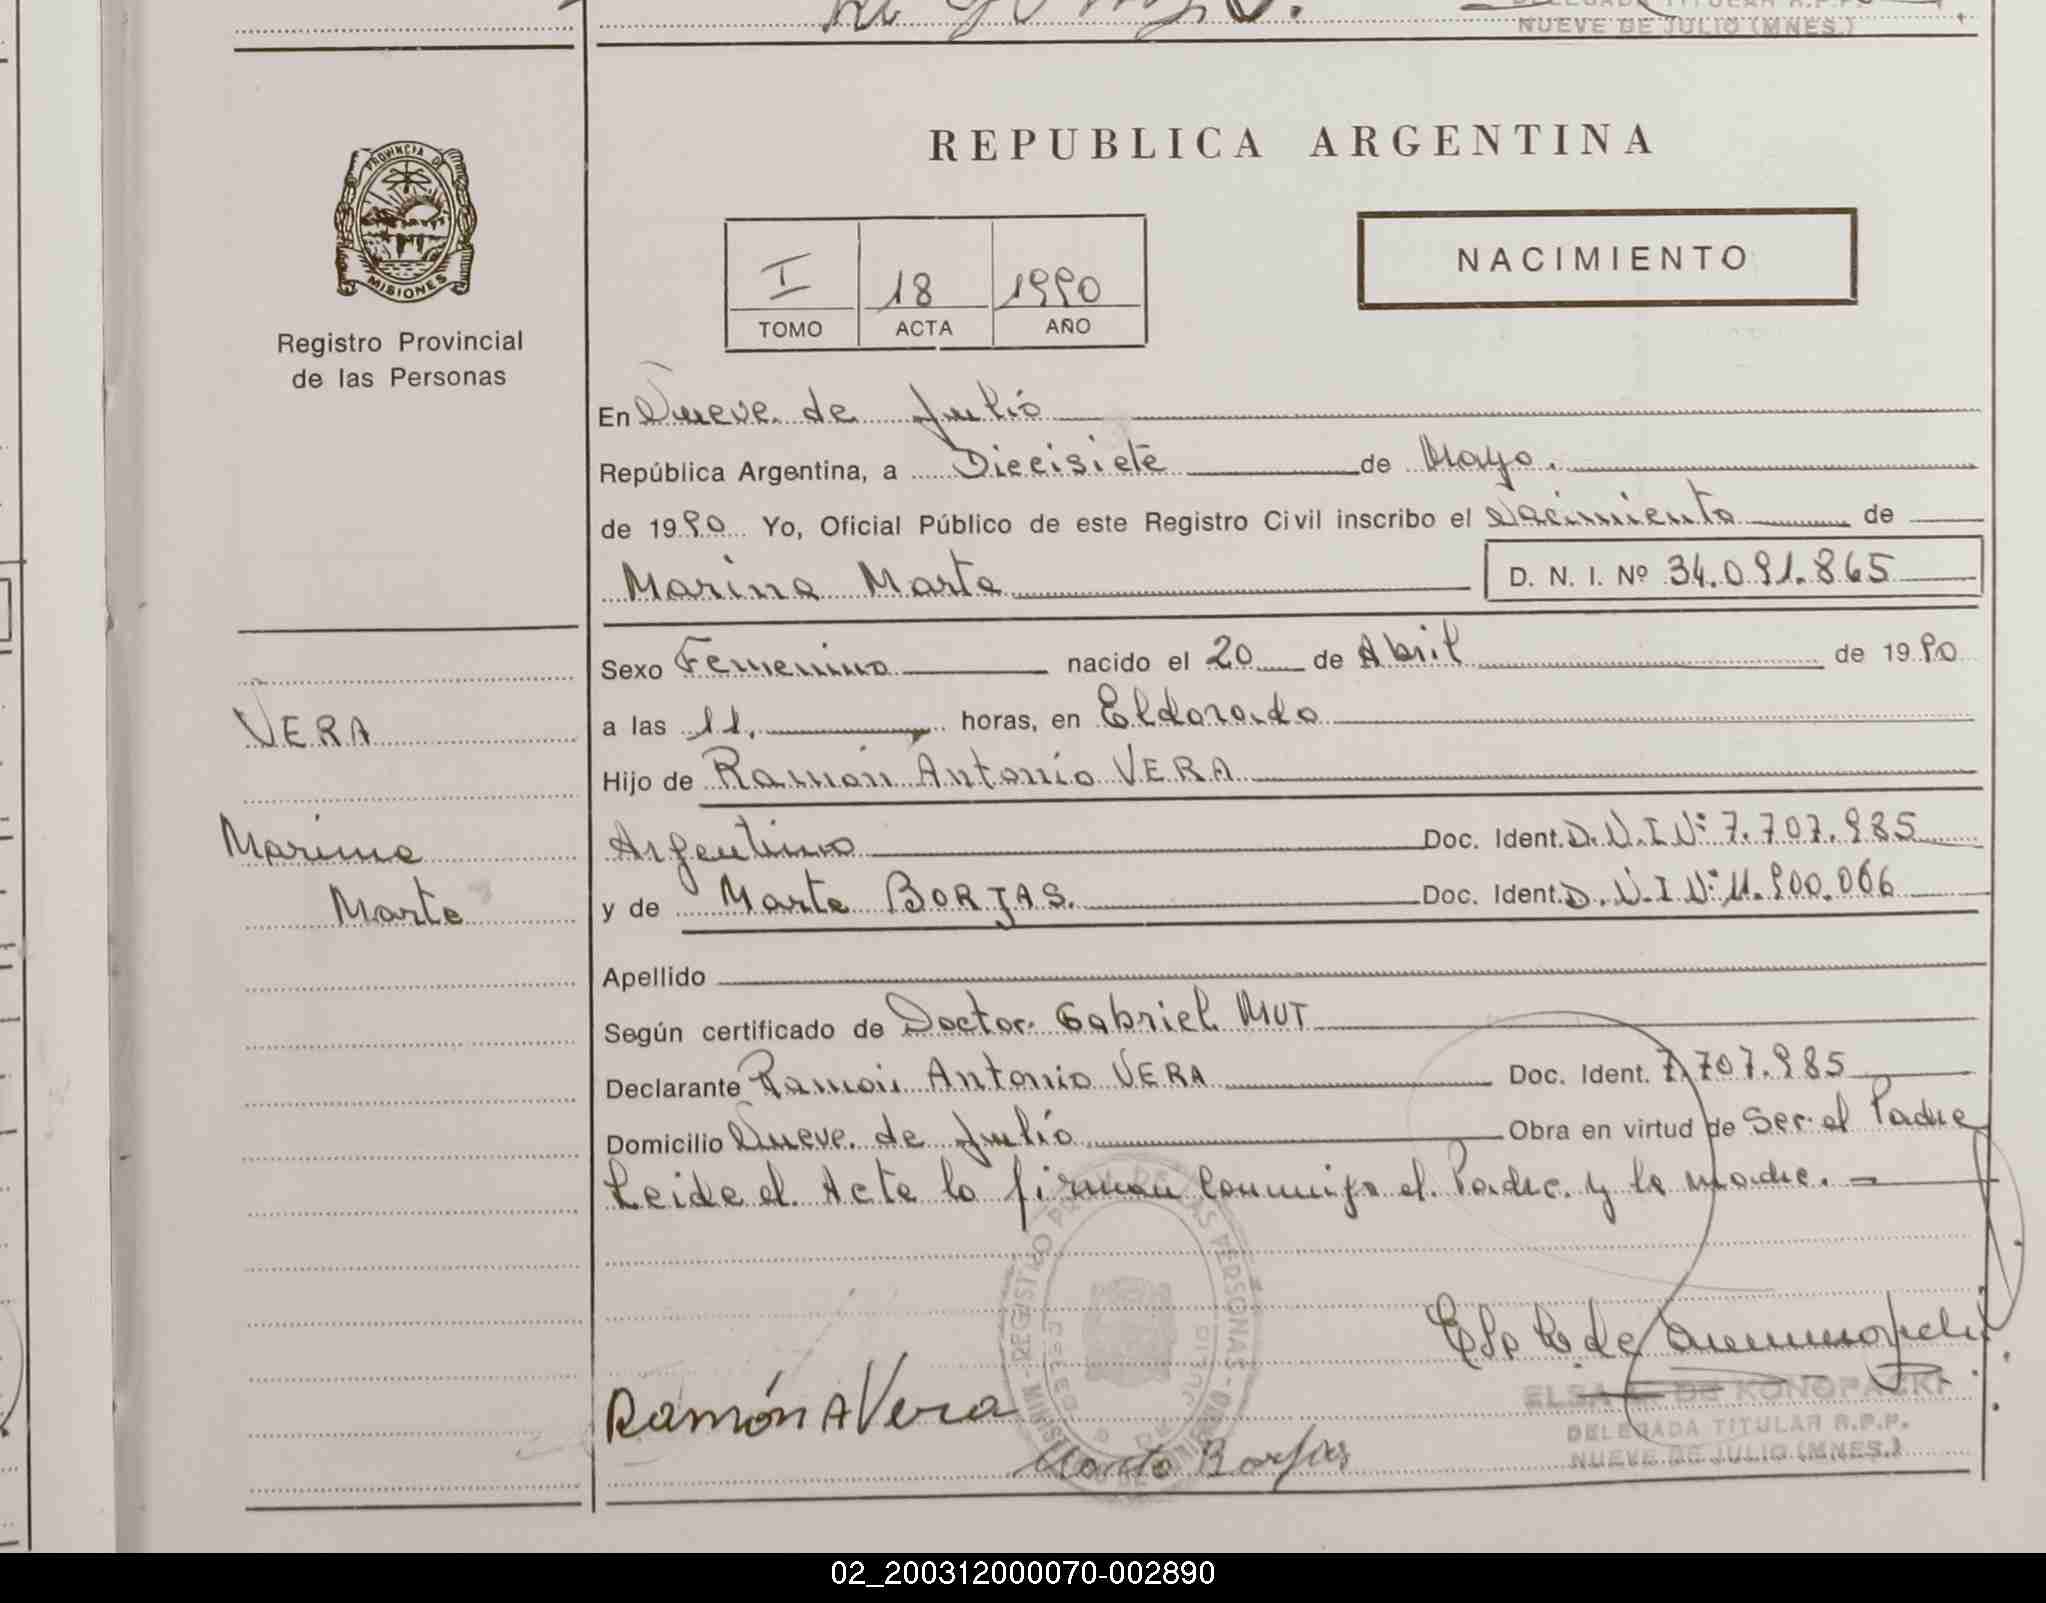 NUEVE DE JULIO (MNES.)
PROVINCIA DE
MISIONES
Registro Provincial
de las Personas
REPUBLICA ARGENTINA
I 18 1990
TOMO ACTA AÑO
NACIMIENTO
En Nueve de Julio
República Argentina, a Diecisiete de Mayo.
de 1990 Yo, Oficial Público de este Registro Civil inscribo el Nacimiento de
Marina Marta D. N. I. Nº 34.091.865
Sexo Femenino nacido el 20 de Abril de 1990
VERA
a las 11. horas, en Eldorado
Hijo de Ramón Antonio VERA
Marina
Argentino Doc. Ident. D.N.I Nº 7.707.985
Marta
y de Marta BORJAS. Doc. Ident. D.N.I Nº 11.900.066
Apellido
Según certificado de Doctor Gabriel MUT
Declarante Ramón Antonio VERA Doc. Ident. 7.707.985
Domicilio Nueve de Julio Obra en virtud de Ser el Padre
Leida el Acta la firman conmigo el Padre y la madre. =
REGISTRO PROV. DE LAS PERSONAS
Ramón A Vera
Marta Borjas
ELSA DE KONOPACKI
DELEGADA TITULAR R.P.P.
NUEVE DE JULIO (MNES.)
02_200312000070-002890